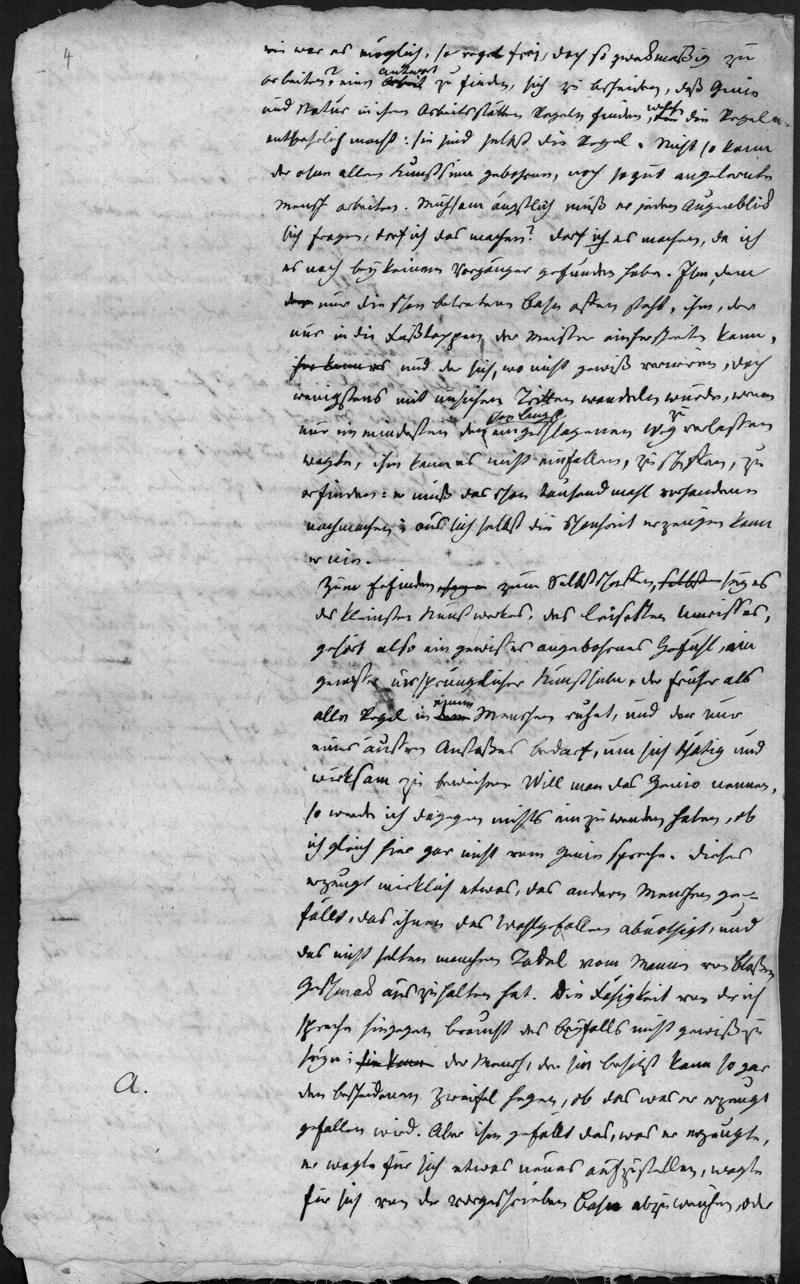 4
wie war es möglich, so regel frei, doch so zwekmaßig zu
arbeiten? eine antwort zu finden, sich zu bescheiden, daß Genie
und Natur in ihren Arbeitsstätten Regeln finden, welche die Regel
entbehrlich macht: sie sind selbst die Regel. Nicht so kann
der ohne allen Kunstsinn gebohrne, noch so gut angelernte
Mensch arbeiten. Mühsam ängstlich muß er jeden Augenblick
sich fragen, darf ich das machen? darf ich es machen, da ich
es noch bey keinem Vorgänger gefunden habe. Ihm, dem
nur die schon betretene Bahn offen steht, ihm, der
nur in die Fußtappen der Meister einherschreiten kann,
und der sich, wo nicht gewiß verirren, doch
wenigstens mit unsichern Tritten wandeln würde, wenn
nur im mindesten den vorlängst eingeschlagenen Weg zu verlassen
wagte, ihm kann es nicht einfallen, zu schaffen, zu
erfinden: er muß das schon tausend mahl vorhandene
nachmachen; aus sich selbst die Schönheit erzeugen kann
er nie.
Zum Erfinden, zum Selbstschaffen, sey es
des kleinsten Kunstwerkes, des leisesten Umrisses,
gehört also ein gewisses angebohrnes Gefühl, ein
gewisser ursprünglicher Kunstsinn, der früher als
alle Regel in einem Menschen ruhet, und der nur
eines äußern Anstoßes bedarf, um sich thätig und
wirksam zu beweisen. Will man das Genie nennen,
so werde ich dagegen nichts einzuwenden haben, ob
ich gleich hier gar nicht vom Genie spreche. Dieses
erzeugt wirklich etwas, das andern Menschen ge-
fällt, das ihnen das Wohlgefallen abnöthigt, und
das nicht selten manchen Tadel vom Manne von bloßem
Geschmak auszuhalten hat. Die Fähigkeit von der ich
spreche hingegen braucht des Beyfalls nicht gewiß zu
seyn; der Mensch, der sie besitzt kann so gar
den bescheidenen Zweifel hegen, ob das was er erzeugt
a.
gefallen wird. Aber ihm gefällt das, was er erzeugte,
er wagte für sich etwas neues aufzustellen, wagte
für sich von der vorgeschriebnen Bahn abzuweichen, oder